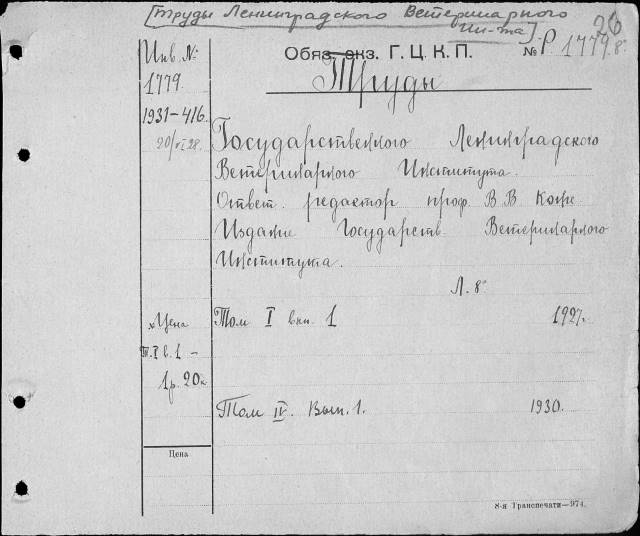 [Труды Ленинградского Ветеринарного
Ин-та]
26
Инв. №
1779
1931-416
20/VI 28.
Обяз. экз. Г. Ц. К. П.
№ Р 1779
Труды
Государственного Ленинградского
Ветеринарного Института.
Ответ. редактор проф. В. В. Конге
Издание Государств. Ветеринарного
Института.
Л. 8°
Цена
Т. I в. 1 -
1 р. 20 к
Том I вып. 1 1927г.
Том IV. Вып. 1. 1930.
Цена
8-я Транспечати—974.